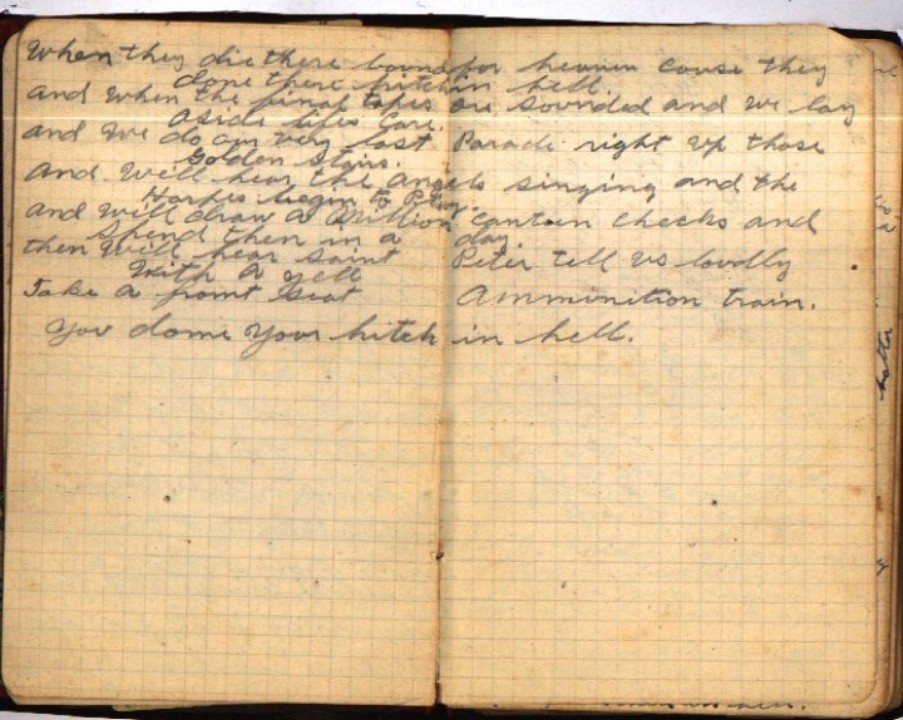 When they die there bound for heaven cause they
done there hitch in hell.
and when the final tapes are sounded and we lay
aside lifes care.
and we do our very last Parade right up those
golden stairs.
And will hear the angels singing and the
Harpes begin to Play.
and will draw a million canteen checks and
spend then in a day.
then will hear saint Peter tell us loudly
with a yell
Take a front seat Ammunition train.
You dome your hitch in hell.